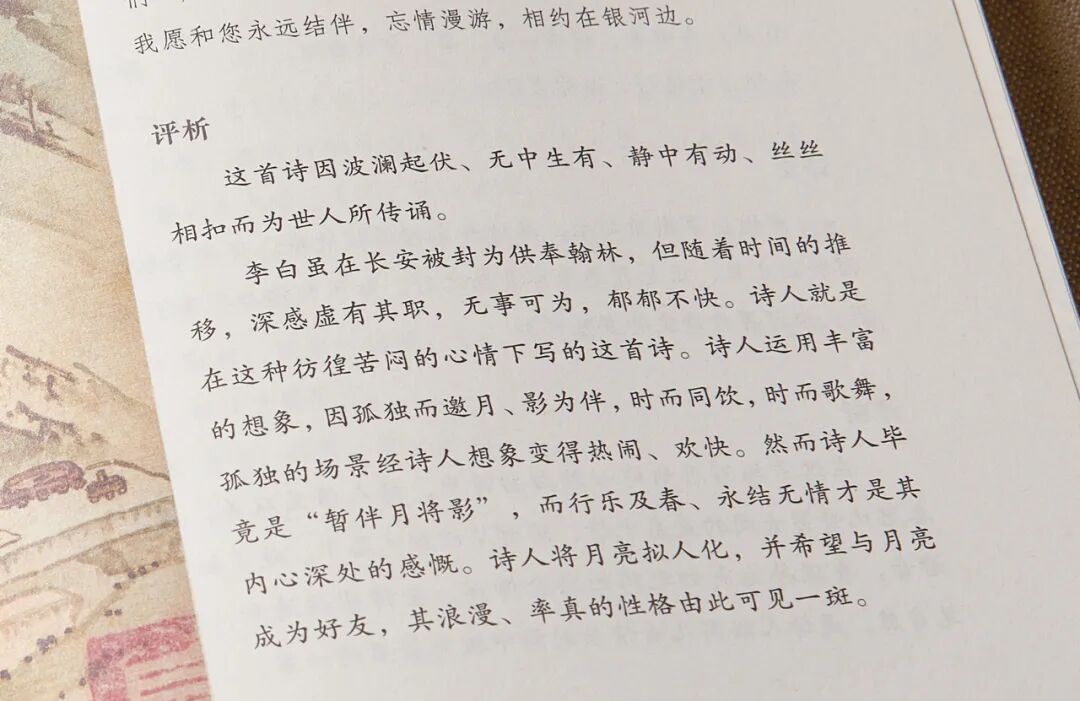 我愿和您永远结伴，忘情漫游，相约在银河边。
评析
这首诗因波澜起伏、无中生有、静中有动、丝丝
相扣而为世人所传诵。
李白虽在长安被封为供奉翰林，但随着时间的推
移，深感虚有其职，无事可为，郁郁不快。诗人就是
在这种彷徨苦闷的心情下写的这首诗。诗人运用丰富
的想象，因孤独而邀月、影为伴，时而同饮，时而歌舞，
孤独的场景经诗人想象变得热闹、欢快。然而诗人毕
竟是“暂伴月将影”，而行乐及春、永结无情才是其
内心深处的感慨。诗人将月亮拟人化，并希望与月亮
成为好友，其浪漫、率真的性格由此可见一斑。